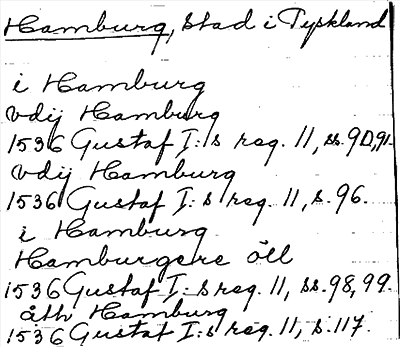 Hamburg, Stad i Tyskland
i Hamburg
vdij Hamburg
1536 Gustaf I:s reg. 11, ss. 90, 91.
vdij Hamburg
1536 Gustaf I:s reg. 11, s. 96.
i Hamburg
Hamburgere öll
1536 Gustaf I:s reg. 11, ss. 98, 99.
åth Hamburg
1536 Gustaf I:s reg. 11, s. 117.